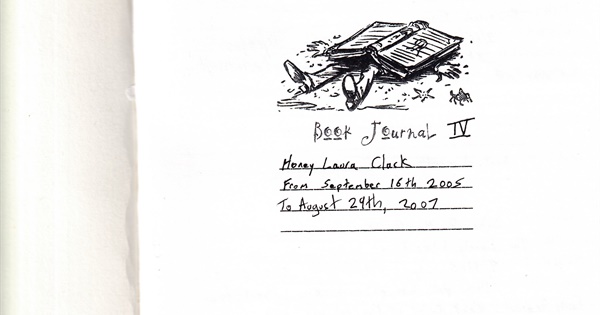 Book Journal IV
Laura
From September 16th 2005
To August 29th, 2007